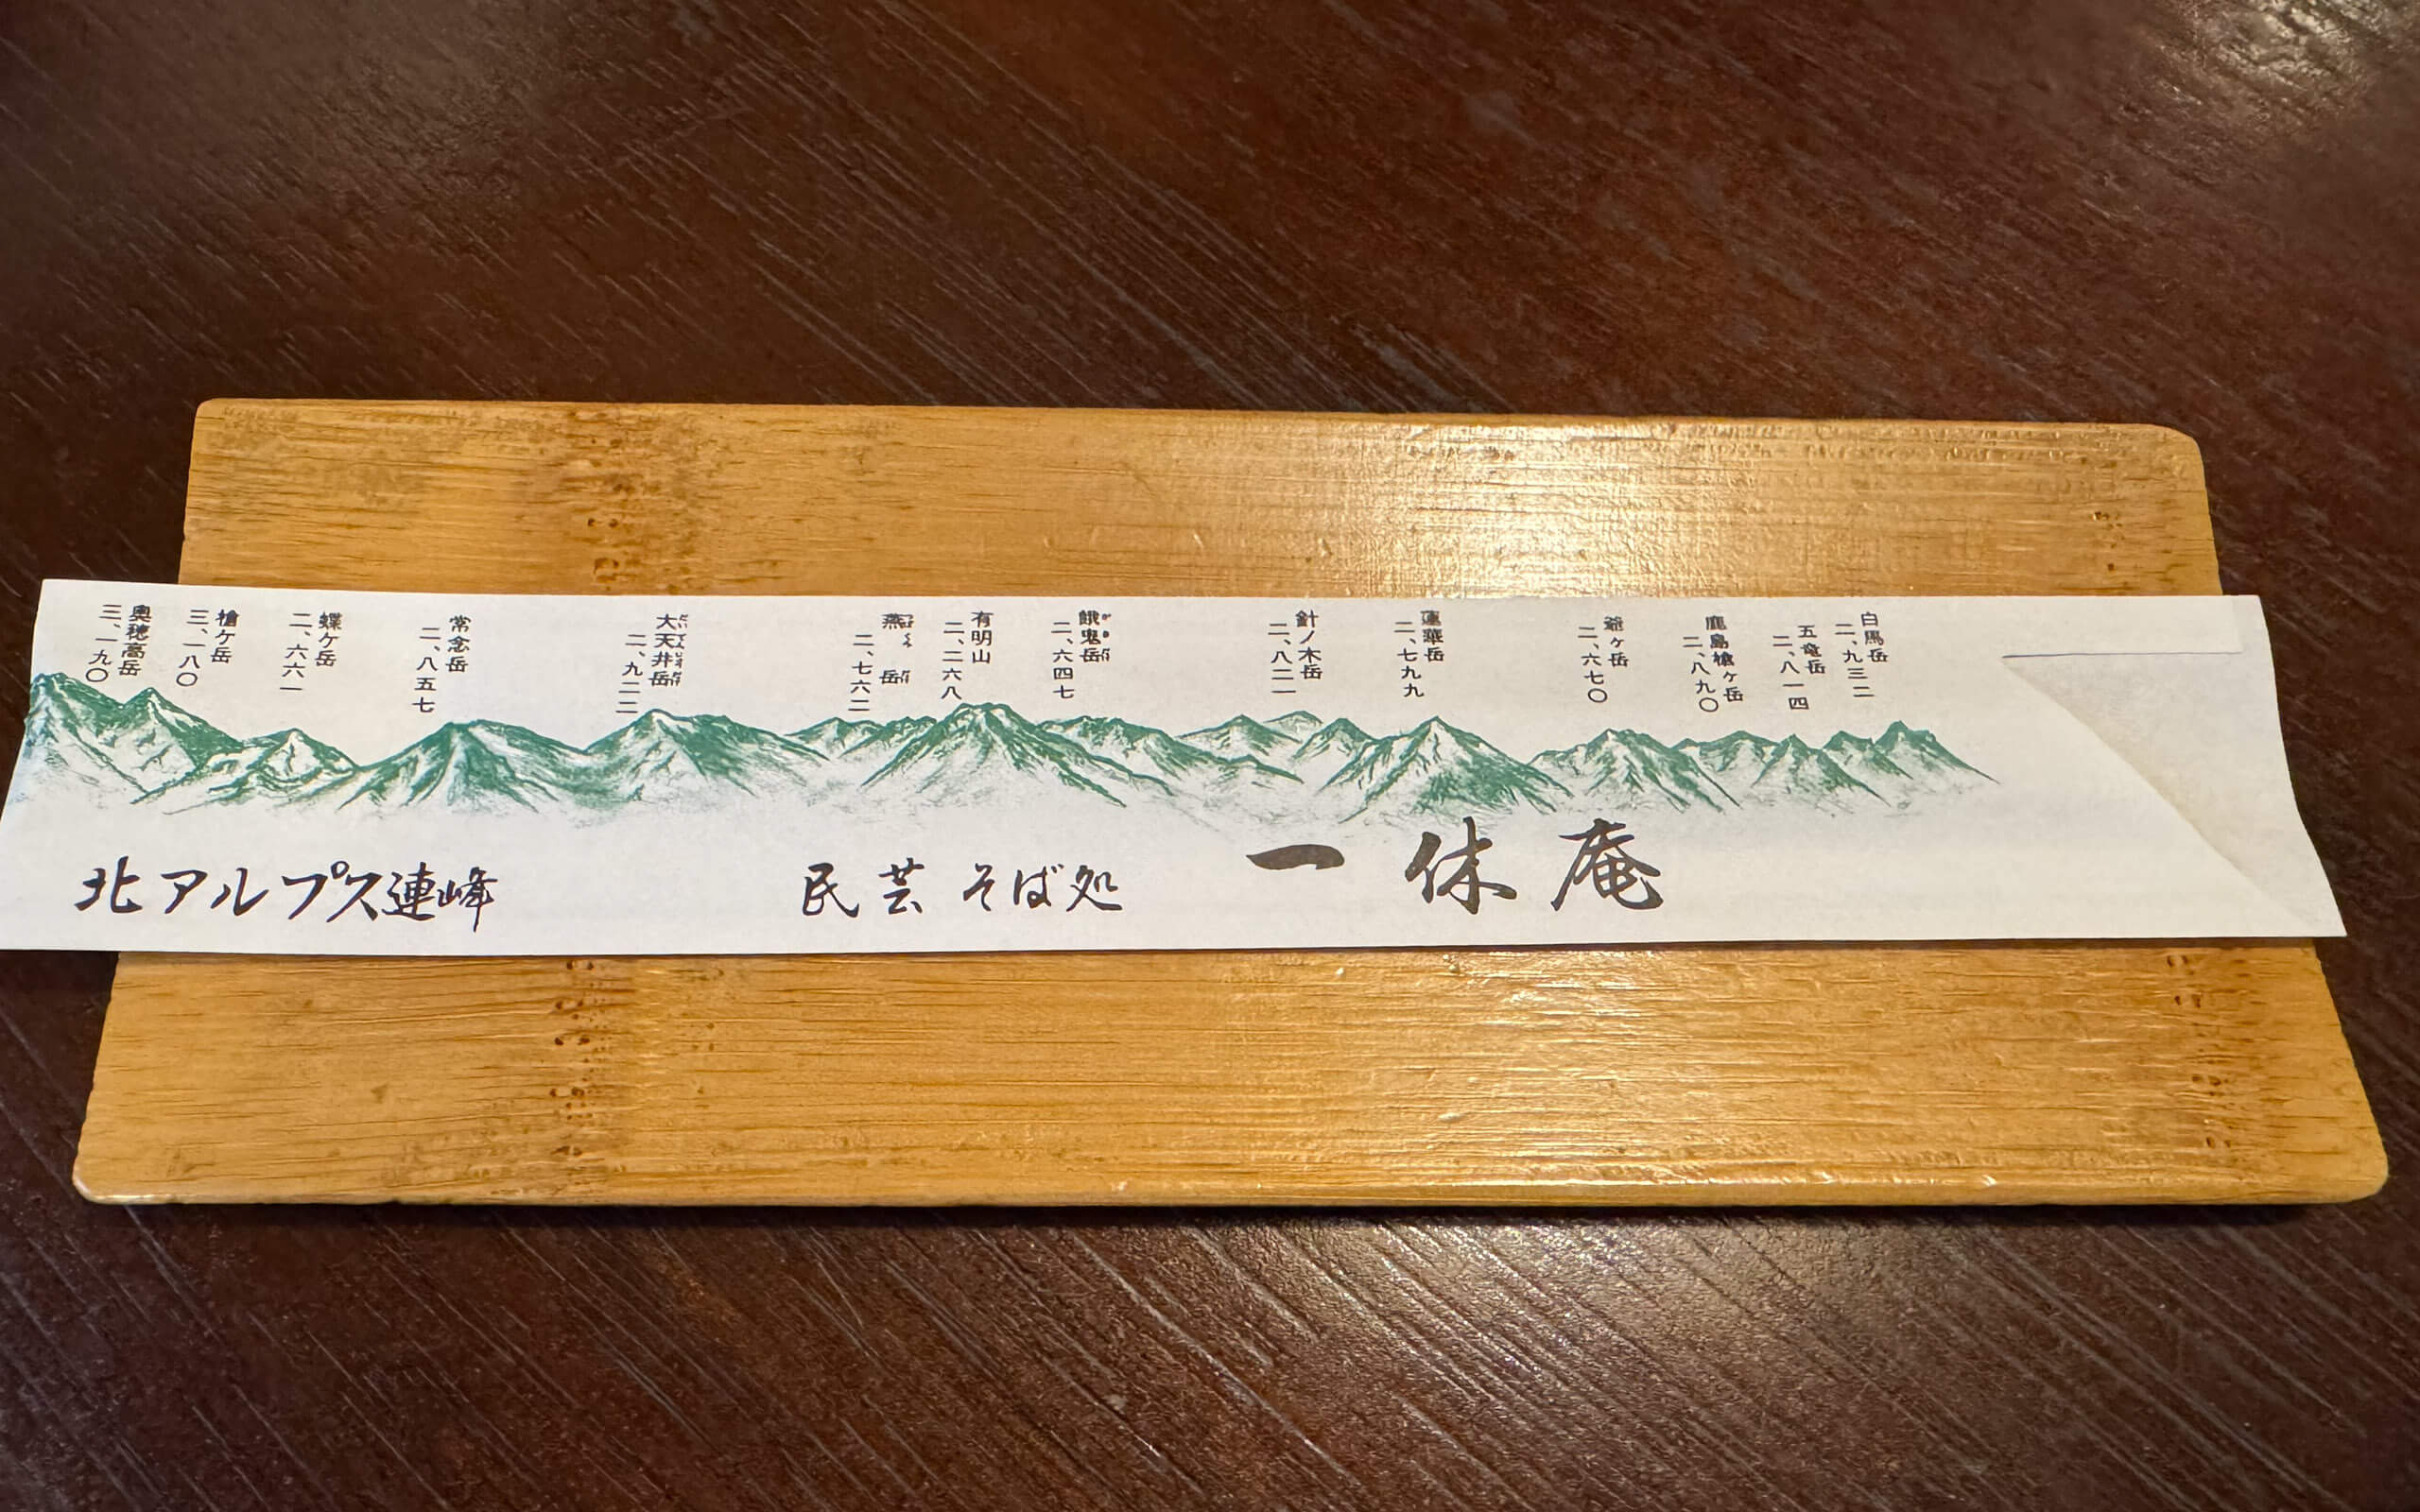 白馬岳
二、九三二
五竜岳
二、八一四
鹿島槍ヶ岳
二、八九〇
爺ヶ岳
二、六七〇
蓮華岳
二、七九九
針ノ木岳
二、八二一
餓鬼岳
がきがく
二、六四七
有明山
二、二六八
燕岳
二、七六二
大天井岳
二、九二二
常念岳
二、八五七
蝶ヶ岳
二、六六一
槍ヶ岳
三、一八〇
奥穂高岳
三、一九〇
北アルプス連峰
民芸 そば処 一休庵